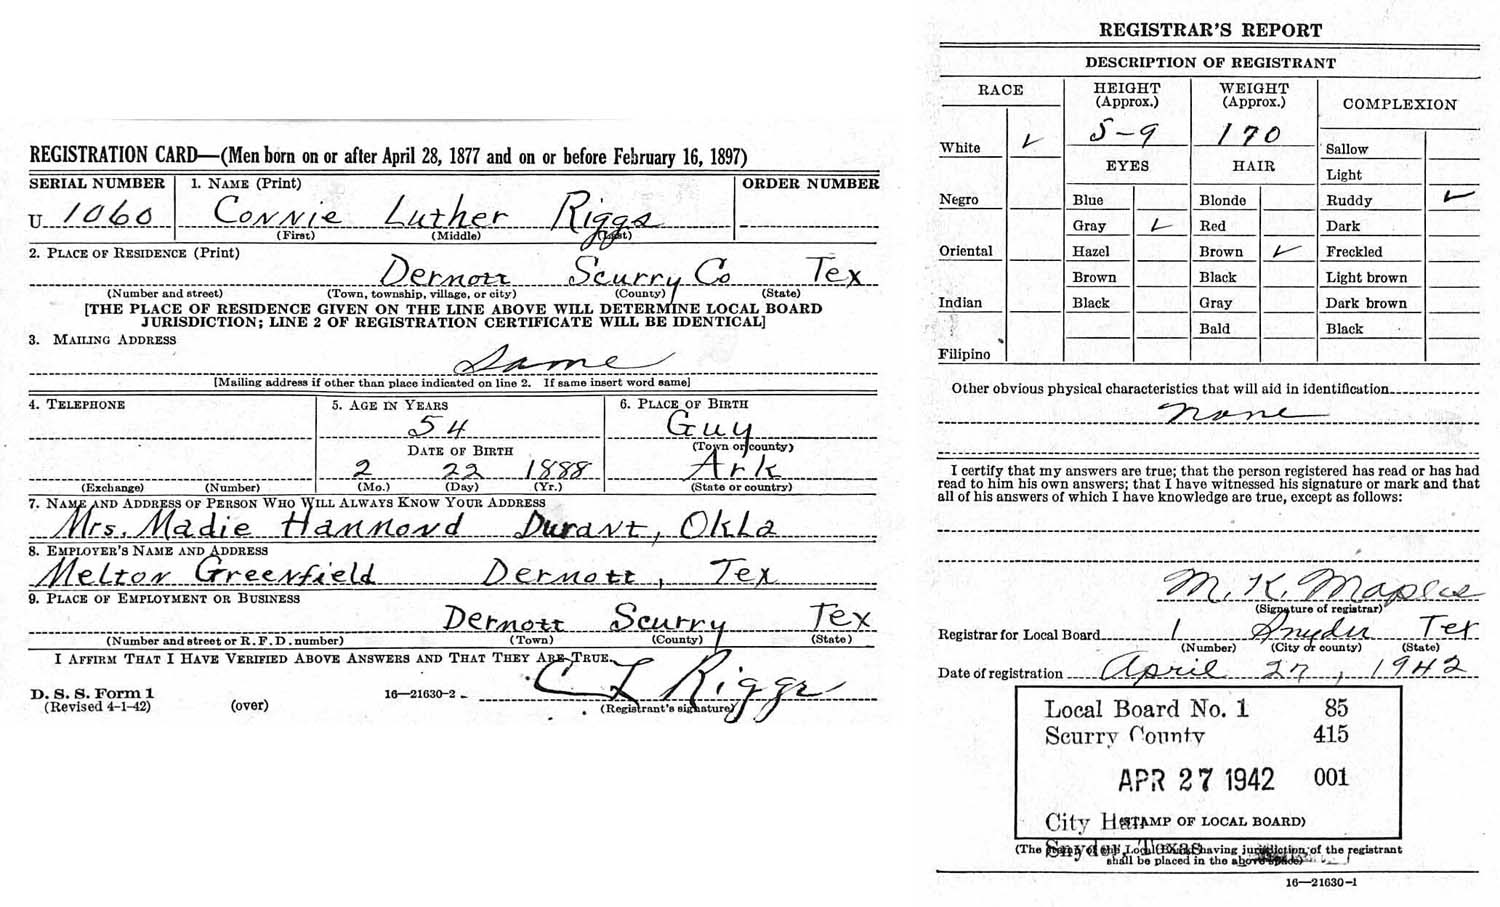 REGISTRATION CARD—(Men born on or after April 28, 1877 and on or before February 16, 1897)
SERIAL NUMBER 1. NAME (Print) ORDER NUMBER
U 1060 Connie Luther Riggs
(First) (Middle) (Last)
2. PLACE OF RESIDENCE (Print)
Dermott Scurry Co Tex
(Number and street) (Town, township, village, or city) (County) (State)
[THE PLACE OF RESIDENCE GIVEN ON THE LINE ABOVE WILL DETERMINE LOCAL BOARD
JURISDICTION; LINE 2 OF REGISTRATION CERTIFICATE WILL BE IDENTICAL]
3. MAILING ADDRESS
Same
[Mailing address if other than place indicated on line 2. If same insert word same]
4. TELEPHONE 5. AGE IN YEARS 6. PLACE OF BIRTH
54 Guy
DATE OF BIRTH (Town or county)
2 22 1888 Ark
(Exchange) (Number) (Mo.) (Day) (Yr.) (State or country)
7. NAME AND ADDRESS OF PERSON WHO WILL ALWAYS KNOW YOUR ADDRESS
Mrs. Madie Hammond Durant, Okla
8. EMPLOYER'S NAME AND ADDRESS
Melton Greenfield Dermott, Tex
9. PLACE OF EMPLOYMENT OR BUSINESS
Dermott Scurry Tex
(Number and street or R. F. D. number) (Town) (County) (State)
I AFFIRM THAT I HAVE VERIFIED ABOVE ANSWERS AND THAT THEY ARE TRUE.
C L Riggs
D. S. S. Form 1 16—21630-2 (Registrant's signature)
(Revised 4-1-42) (over)
REGISTRAR'S REPORT
DESCRIPTION OF REGISTRANT
RACE HEIGHT (Approx.) WEIGHT (Approx.) COMPLEXION
5-9 170
White ✓ Sallow
EYES HAIR Light
Negro Blue Blonde Ruddy ✓
Gray ✓ Red Dark
Oriental Hazel Brown ✓ Freckled
Brown Black Light brown
Indian Black Gray Dark brown
Bald Black
Filipino
Other obvious physical characteristics that will aid in identification
none
I certify that my answers are true; that the person registered has read or has had
read to him his own answers; that I have witnessed his signature or mark and that
all of his answers of which I have knowledge are true, except as follows:
M. K. Maples
(Signature of registrar)
Registrar for Local Board 1 Snyder Tex
(Number) (City or county) (State)
Date of registration April 27, 1942
Local Board No. 1 85
Scurry County 415
APR 27 1942 001
City Hall
(STAMP OF LOCAL BOARD)
Snyder, Texas
(The stamp of the Local Board having jurisdiction of the registrant
shall be placed in the above space)
16—21630-1